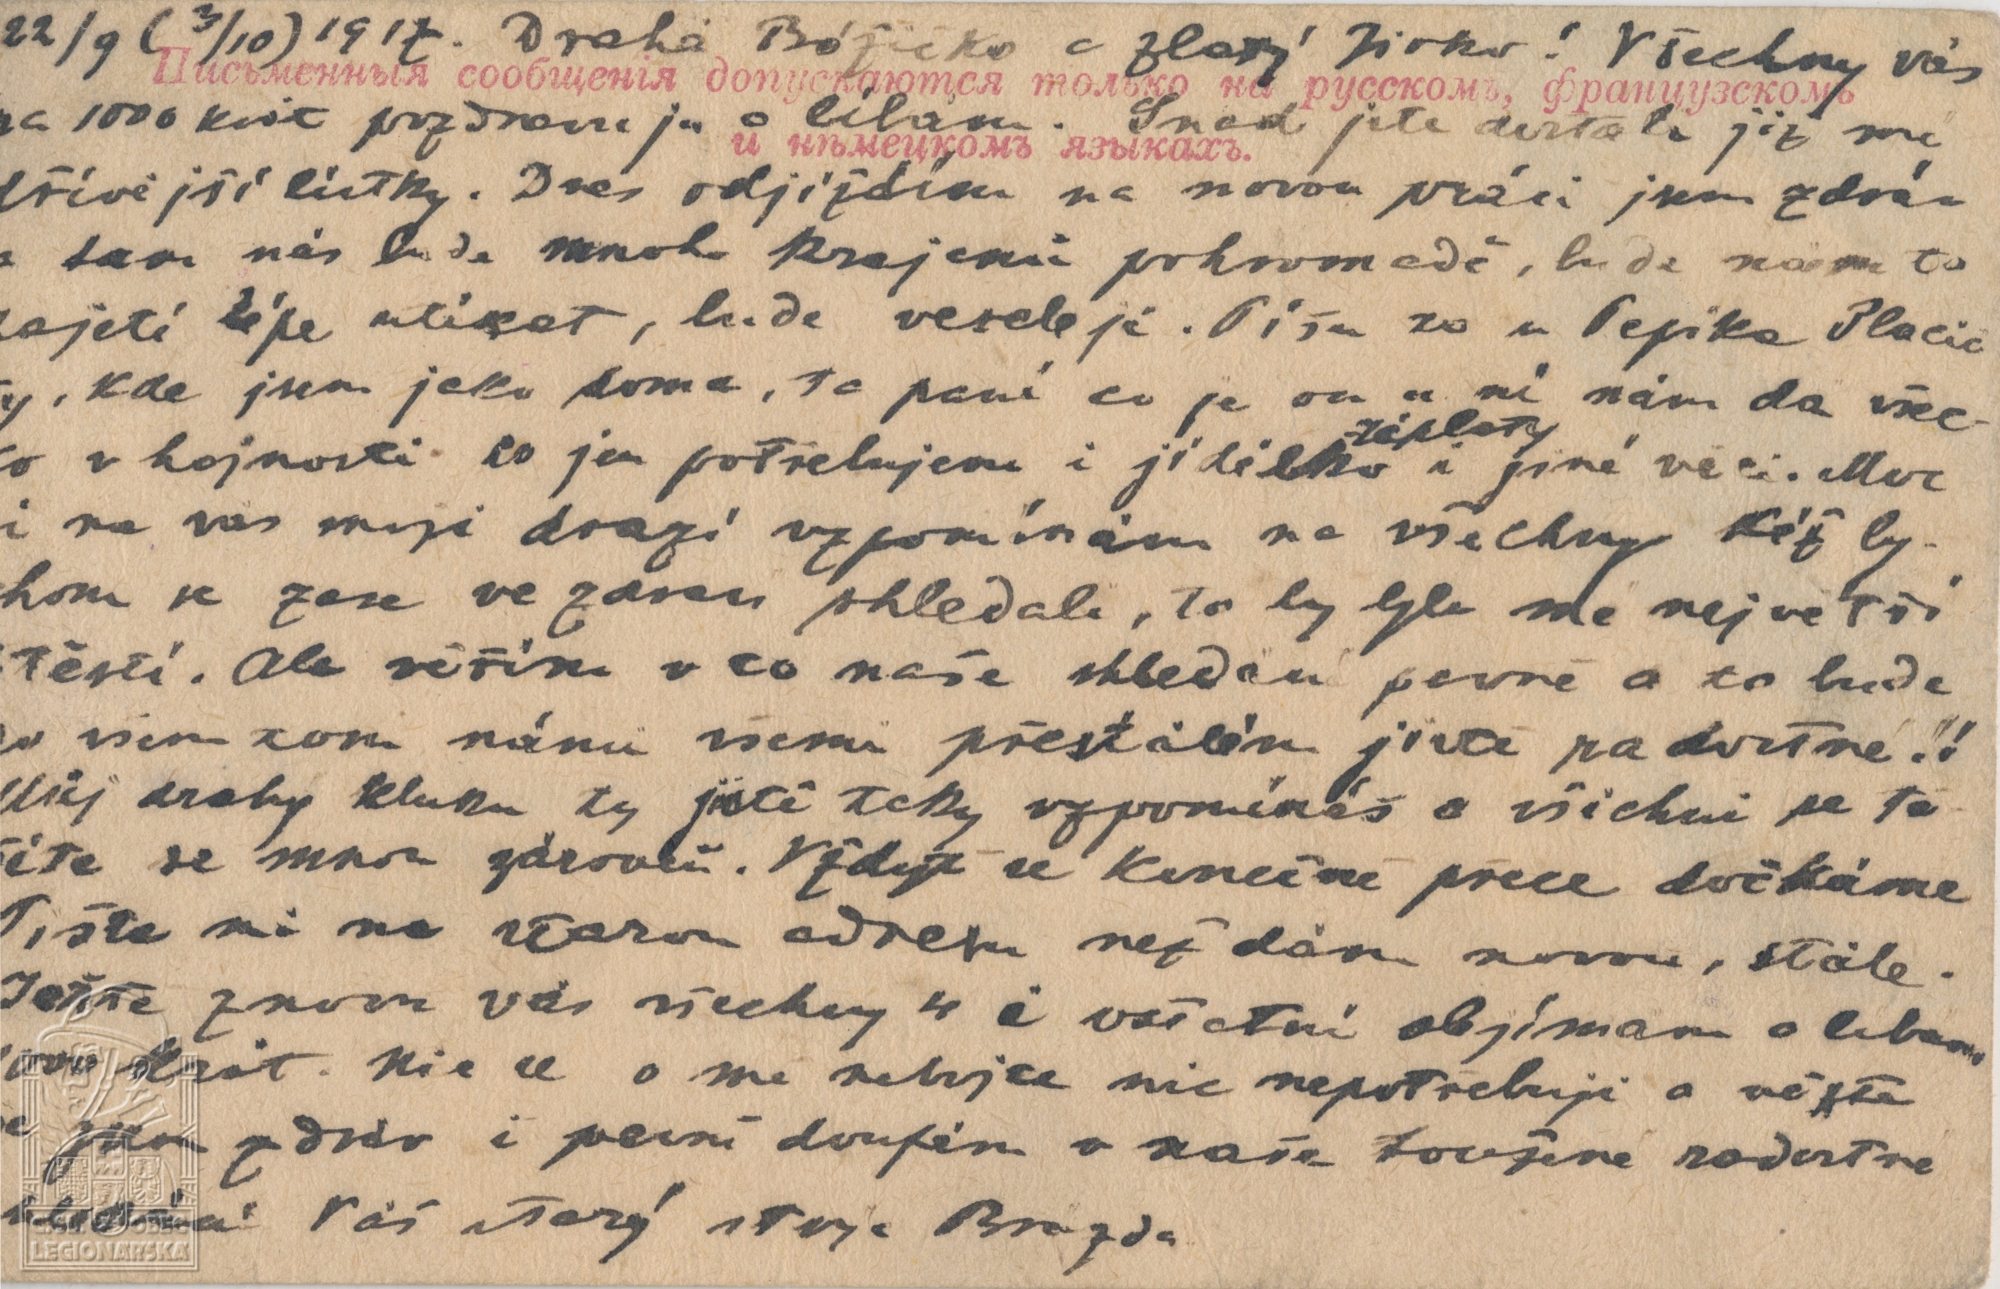 22/9 (3/10) 1917. Drahá Boženko a zlatý Jirko! Všechny vás
Письменныя сообщенія допускаются только на русскомъ, французскомъ
na 1000 krát pozdravuju a líbám. Snad jste dostali již mé
и нѣмецкомъ языкахъ.
dřívější lístky. Dnes odjíždím na novou práci jsem zdráv
a tam nás bude mnoho krajanů pohromadě, bude nám to
zajetí lépe utíkat, bude veseleji. Píšu to u Pepíka
kde jsem jako doma, ta paní co je on u ní nám dá všec-
ko v hojnosti co jen potřebujem i jídélko záplaty i jiné věci. Moc
i na vás moji drazí vzpomínám na všechny kéž by-
chom se zase ve zdraví shledali, to by bylo mé největší
štěstí. Ale věřím v to naše shledání pevně a to bude
po všem tom námi všemi přestálém jistě radostné!!
Můj drahý kluku ty jistě taky vzpomínáš a všichni se tě-
šíte se mnou zároveň. Vždyť se konečně přece dočkáme
Pište mi na starou adresu než dám novou, stále.
Ještě znovu vás všechny 4 i ostatní objímám a líbám
krát. Nic se o mě nebojte nic nepotřebuji a věřte
že jsem zdráv i pevně doufám v naše toužené radostné
shledání Váš starý strýc Brazda
ČESKOSLOVENSKÁ OBEC
LEGIONÁŘSKÁ